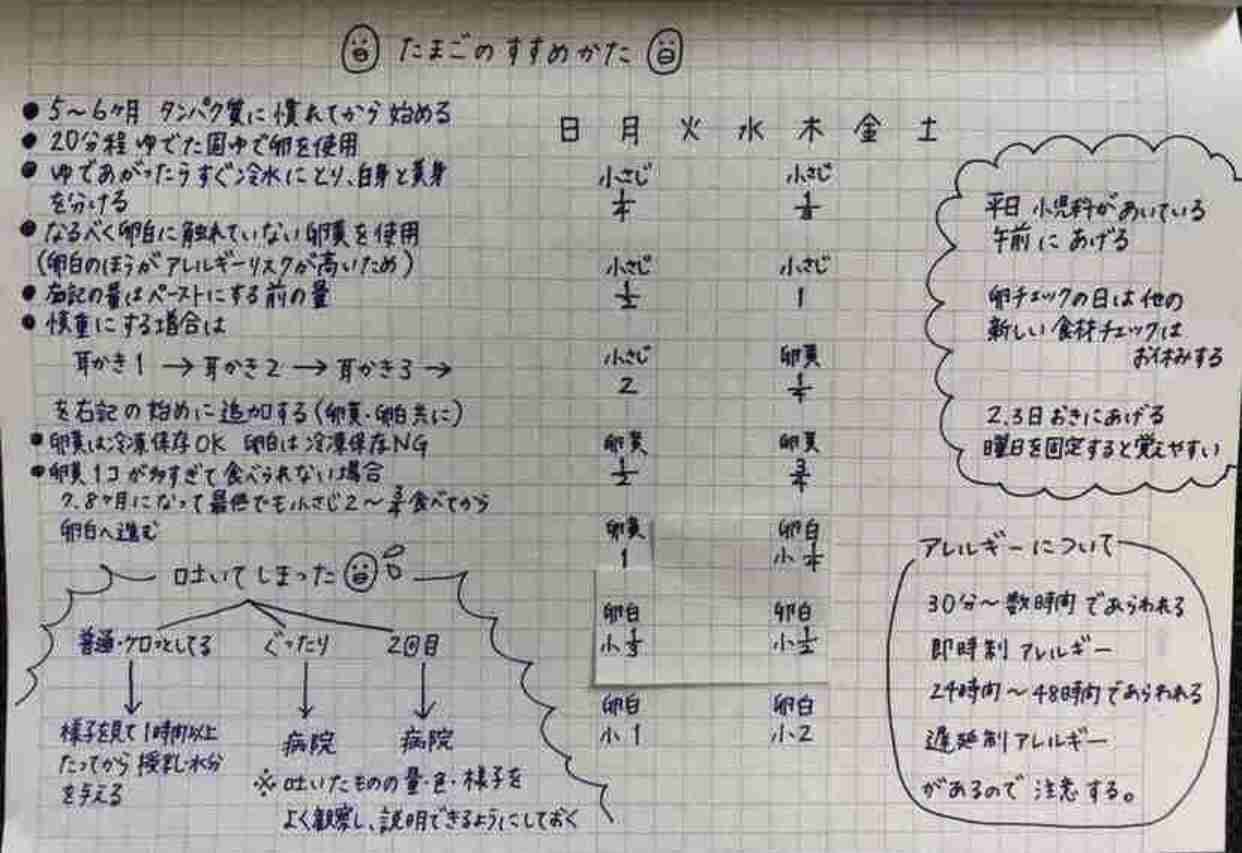 たまごのすすめかた
● 5～6ヶ月 タンパク質に慣れてから始める
● 20分程ゆでた固ゆで卵を使用
● ゆであがったらすぐ冷水にとり、白身と黄身
を分ける
● なるべく卵白に触れていない卵黄を使用
(卵白のほうがアレルギーリスクが高いため)
● 右記の量はペーストにする前の量
● 慎重にする場合は
耳かき1 → 耳かき2 → 耳かき3 →
を右記の始めに追加する(卵黄・卵白共に)
● 卵黄は冷凍保存OK 卵白は冷凍保存NG
● 卵黄1コが多すぎて食べられない場合
7.8ヶ月になって最低でも小さじ2～3/4食べてから
卵白へ進む
日 月 火 水 木 金 土
小さじ 小さじ
1/4
小さじ 小さじ
1/2 1
小さじ 卵黄
2 1/4
卵黄 卵黄
1/2 3/4
卵黄 卵白
1 小1/4
卵白 卵白
小1/3 小1/2
卵白 卵白
小1 小2
平日 小児科があいている
午前にあげる
卵チェックの日は他の
新しい食材チェックは
お休みする
2.3日おきにあげる
曜日を固定すると覚えやすい
吐いてしまった
普通・ケロッとしてる ぐったり 2回目
様子を見て1時間以上
たってから授乳・水分
を与える
病院 病院
※吐いたものの量・色・様子を
よく観察し、説明できるようにしておく
アレルギーについて
30分～数時間であらわれる
即時制アレルギー
24時間～48時間であらわれる
遅延制アレルギー
があるので注意する。